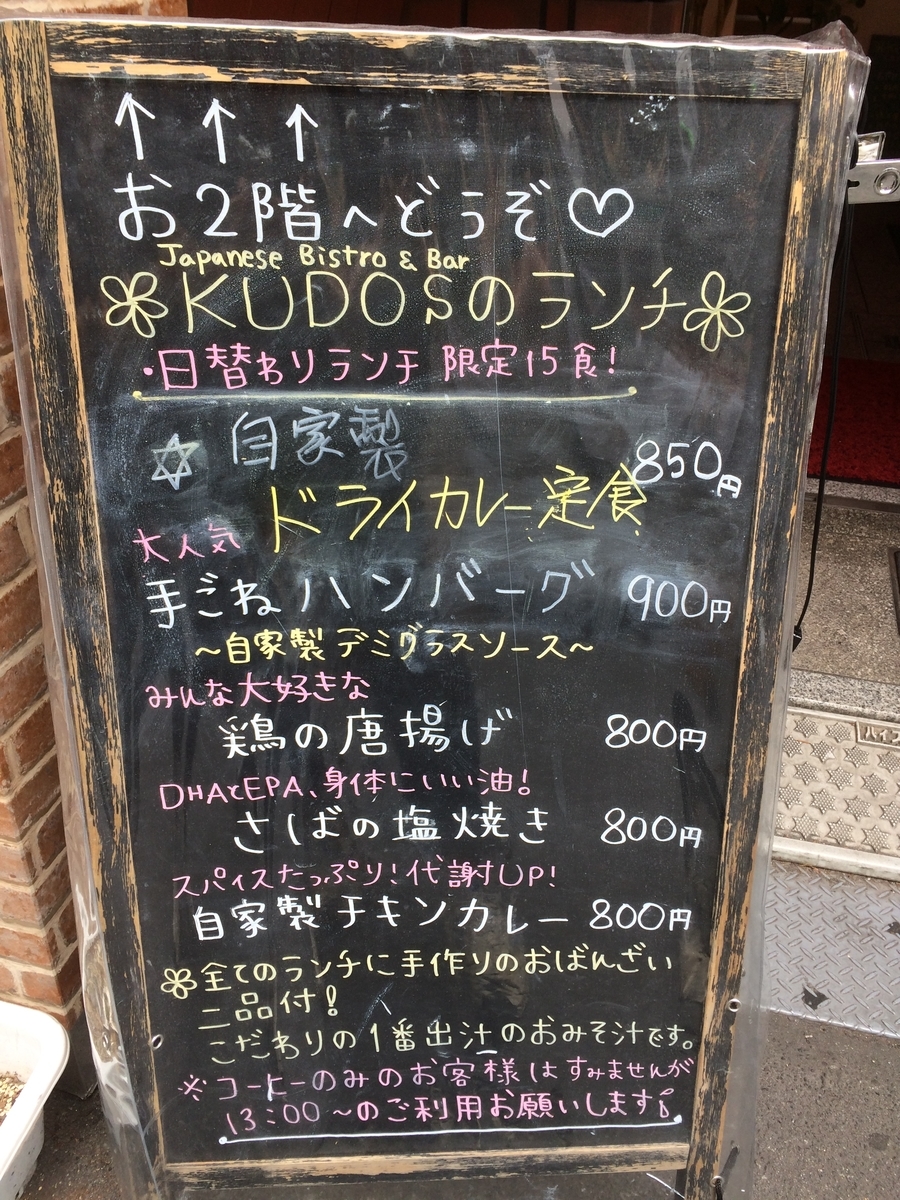 ↑ ↑ ↑
お2階へどうぞ♡
Japanese Bistro & Bar
KUDOSのランチ
・日替わりランチ 限定15食!
☆ 自家製
850円
ドライカレー定食
大人気
手ごねハンバーグ 900円
～自家製デミグラスソース～
みんな大好きな
鶏の唐揚げ 800円
DHAとEPA、身体にいい油!
さばの塩焼き 800円
スパイスたっぷり!代謝UP!
自家製チキンカレー 800円
全てのランチに手作りのおばんざい
二品付!
こだわりの1番出汁のおみそ汁です。
※コーヒーのみのお客様はすみませんが
13:00～のご利用お願いします!